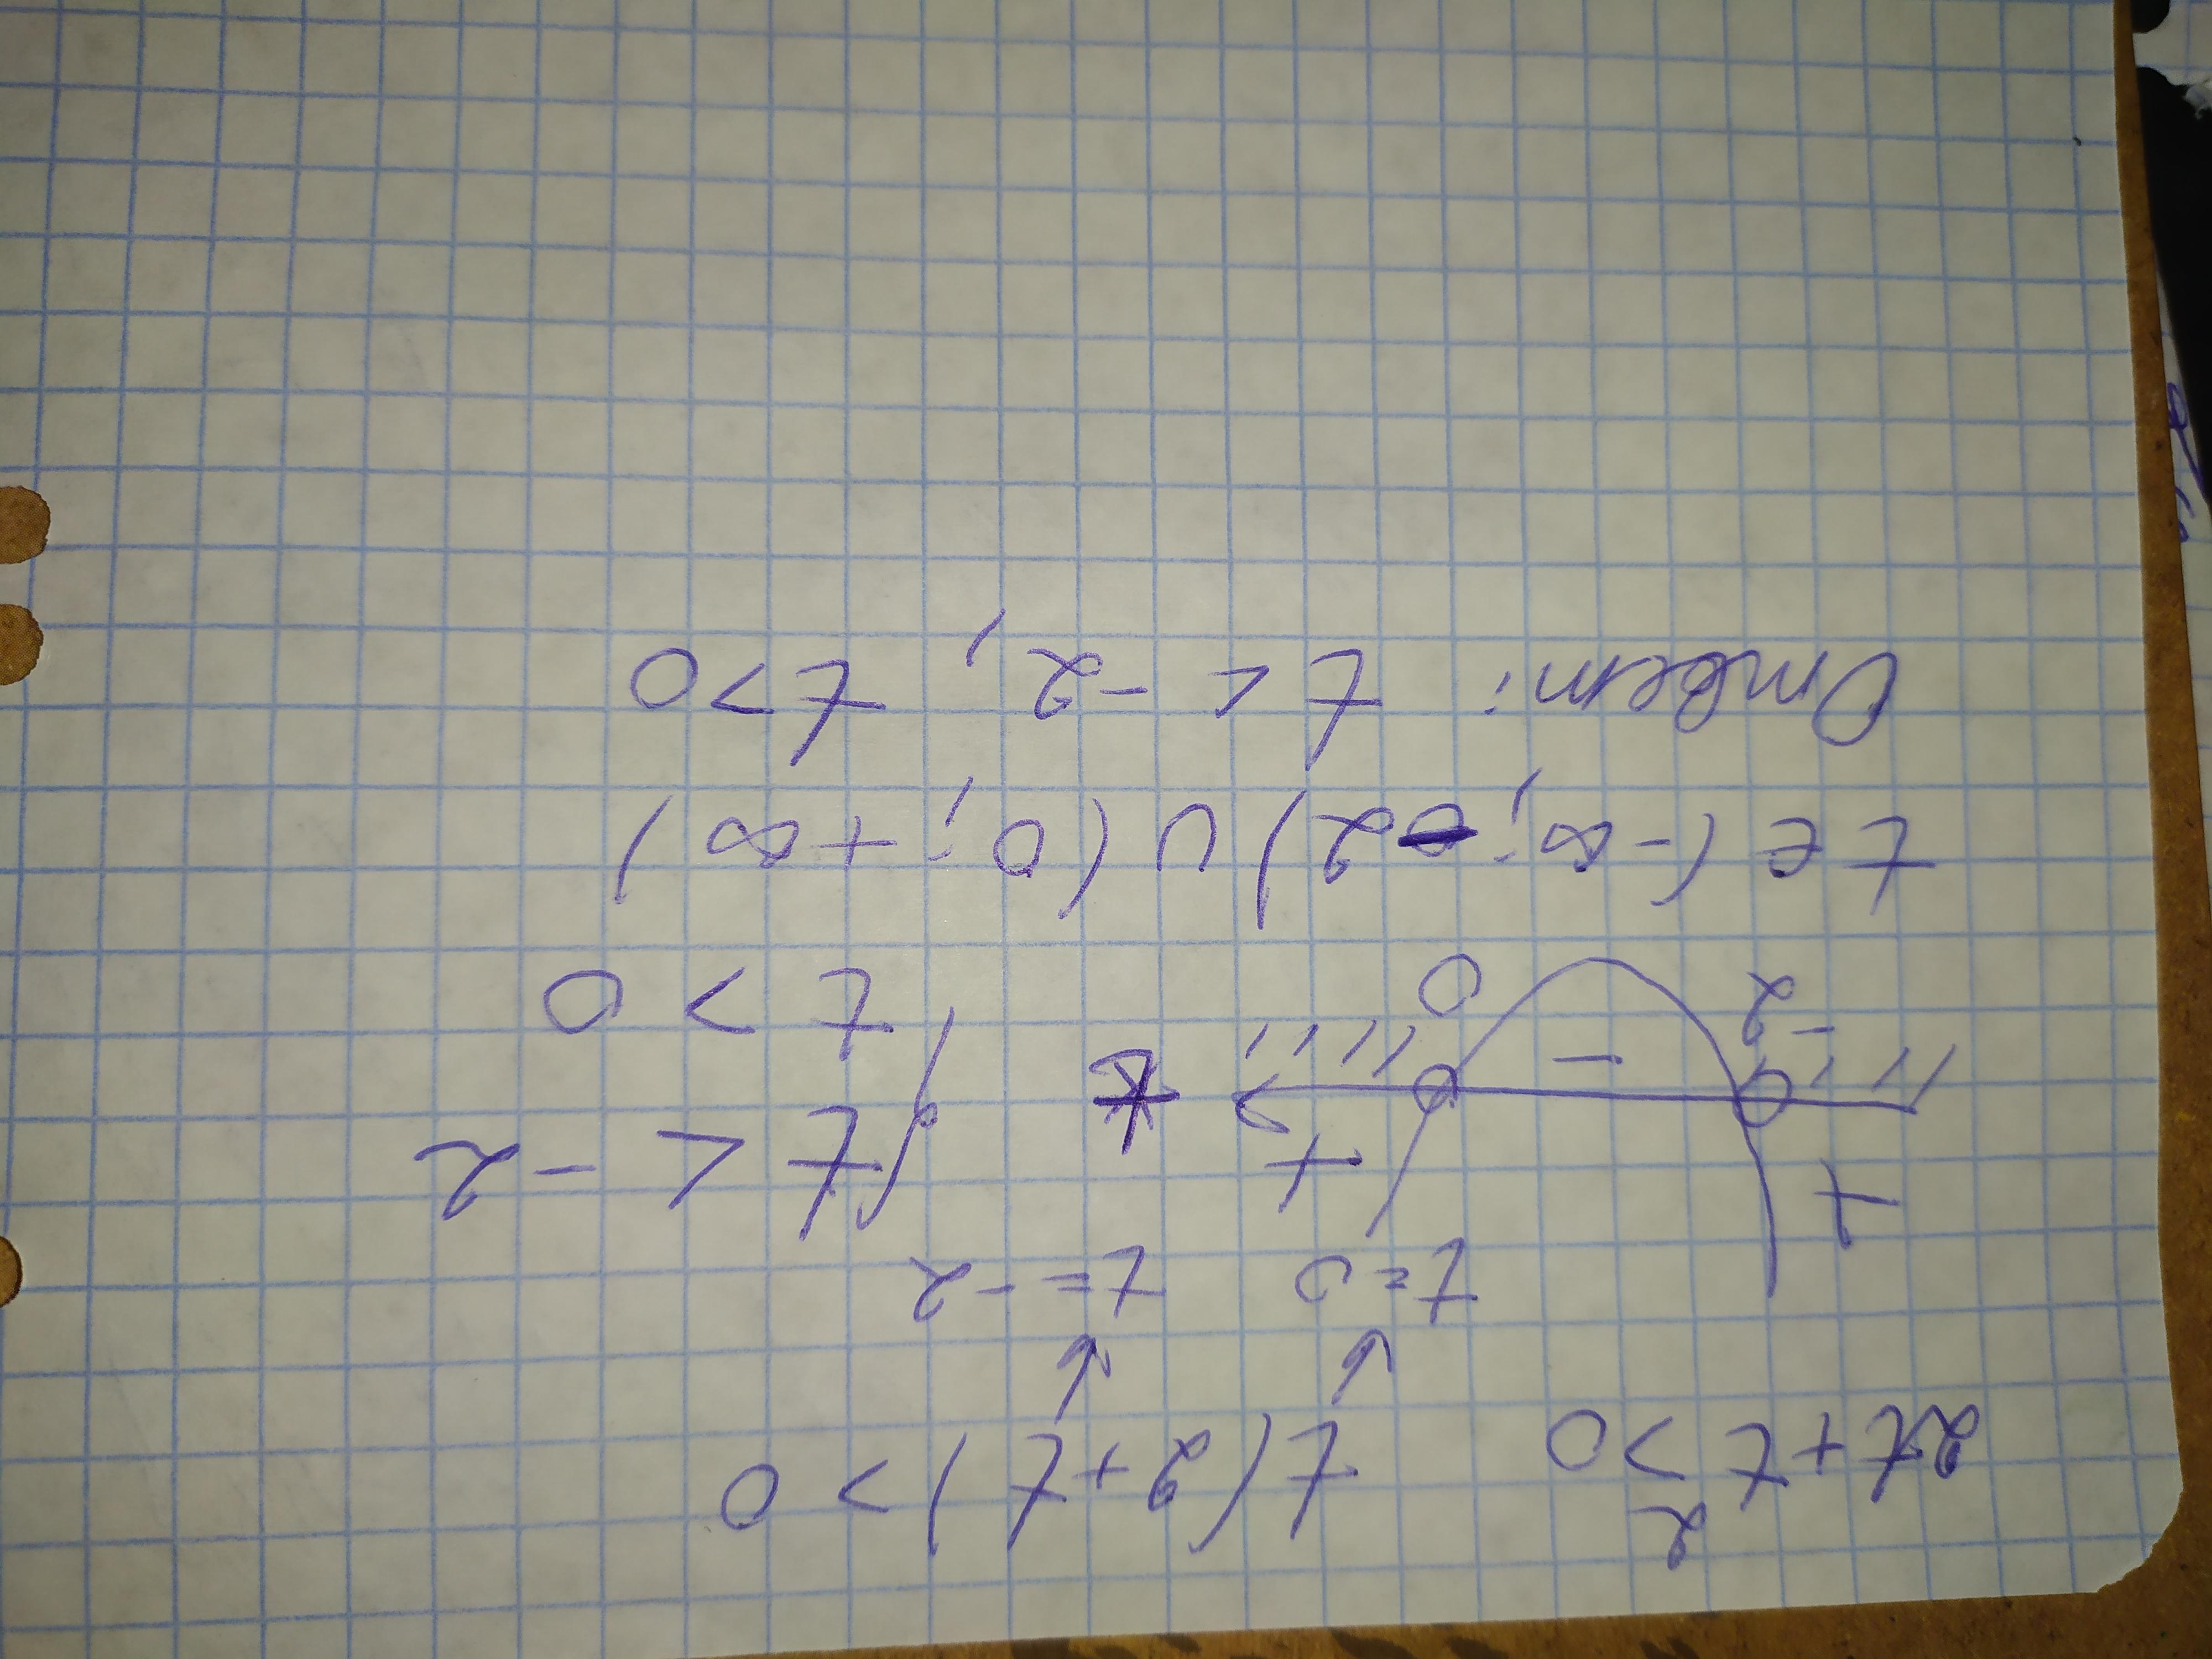 2t+t²>0 t(2+t)>0
t=0 t=-2
+ - + t < -2
-2 0 t > 0
t ∈ (-∞; -2) ∪ (0; +∞)
Ответ: t < -2; t>0